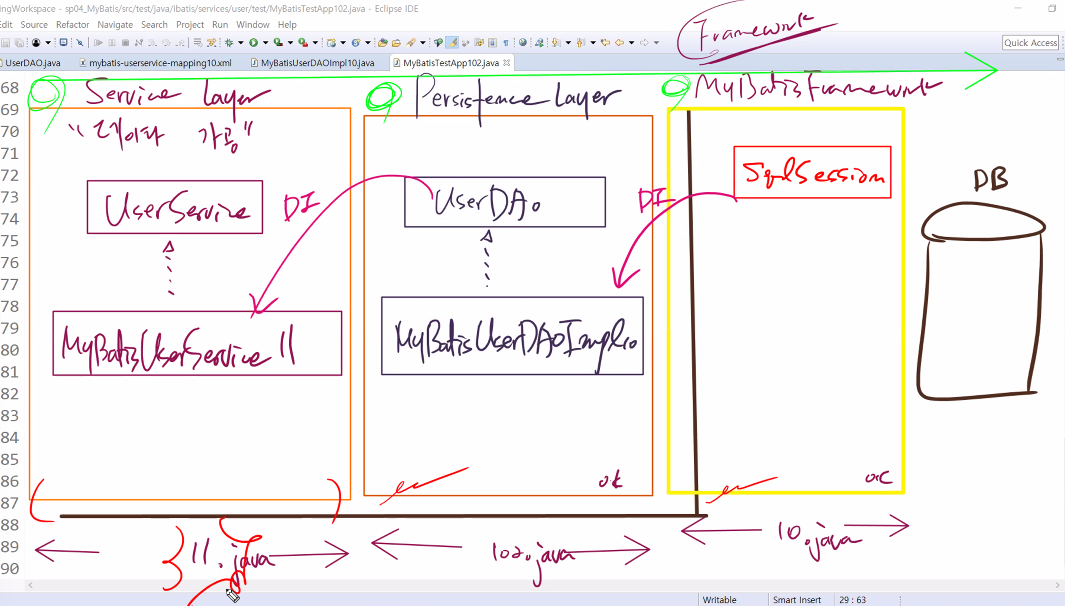 ingWorkspace - sp04_MyBatis/src/test/java/ibatis/services/user/test/MyBatisTestApp102.java - Eclipse IDE
Edit Source Refactor Navigate Search Project Run Window Help
Framework
Quick Access
UserDAO.java mybatis-userservice-mapping10.xml MyBatisUserDAOImpl10.java MyBatisTestApp102.java
68
69
70
71
72
73
74
75
76
77
78
79
80
81
82
83
84
85
86
87
88
89
90
Service Layer
Persistence Layer
MyBatis Framework
가공"
SqlSession
DB
UserService
DI
UserDAO
DI
MyBatisUserService11
MyBatisUserDAOImpl10
ok
11.java
102.java
10.java
Writable Smart Insert 29 : 63